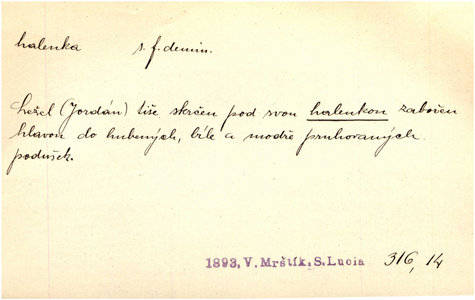 halenka s. f. demin.
Ležel (Jordán) tiše skrčen pod svou halenkou zabořen
hlavou do hubených, bíle a modře pruhovaných
podušek.
1893, V. Mrštík, S. Lucia 316, 14